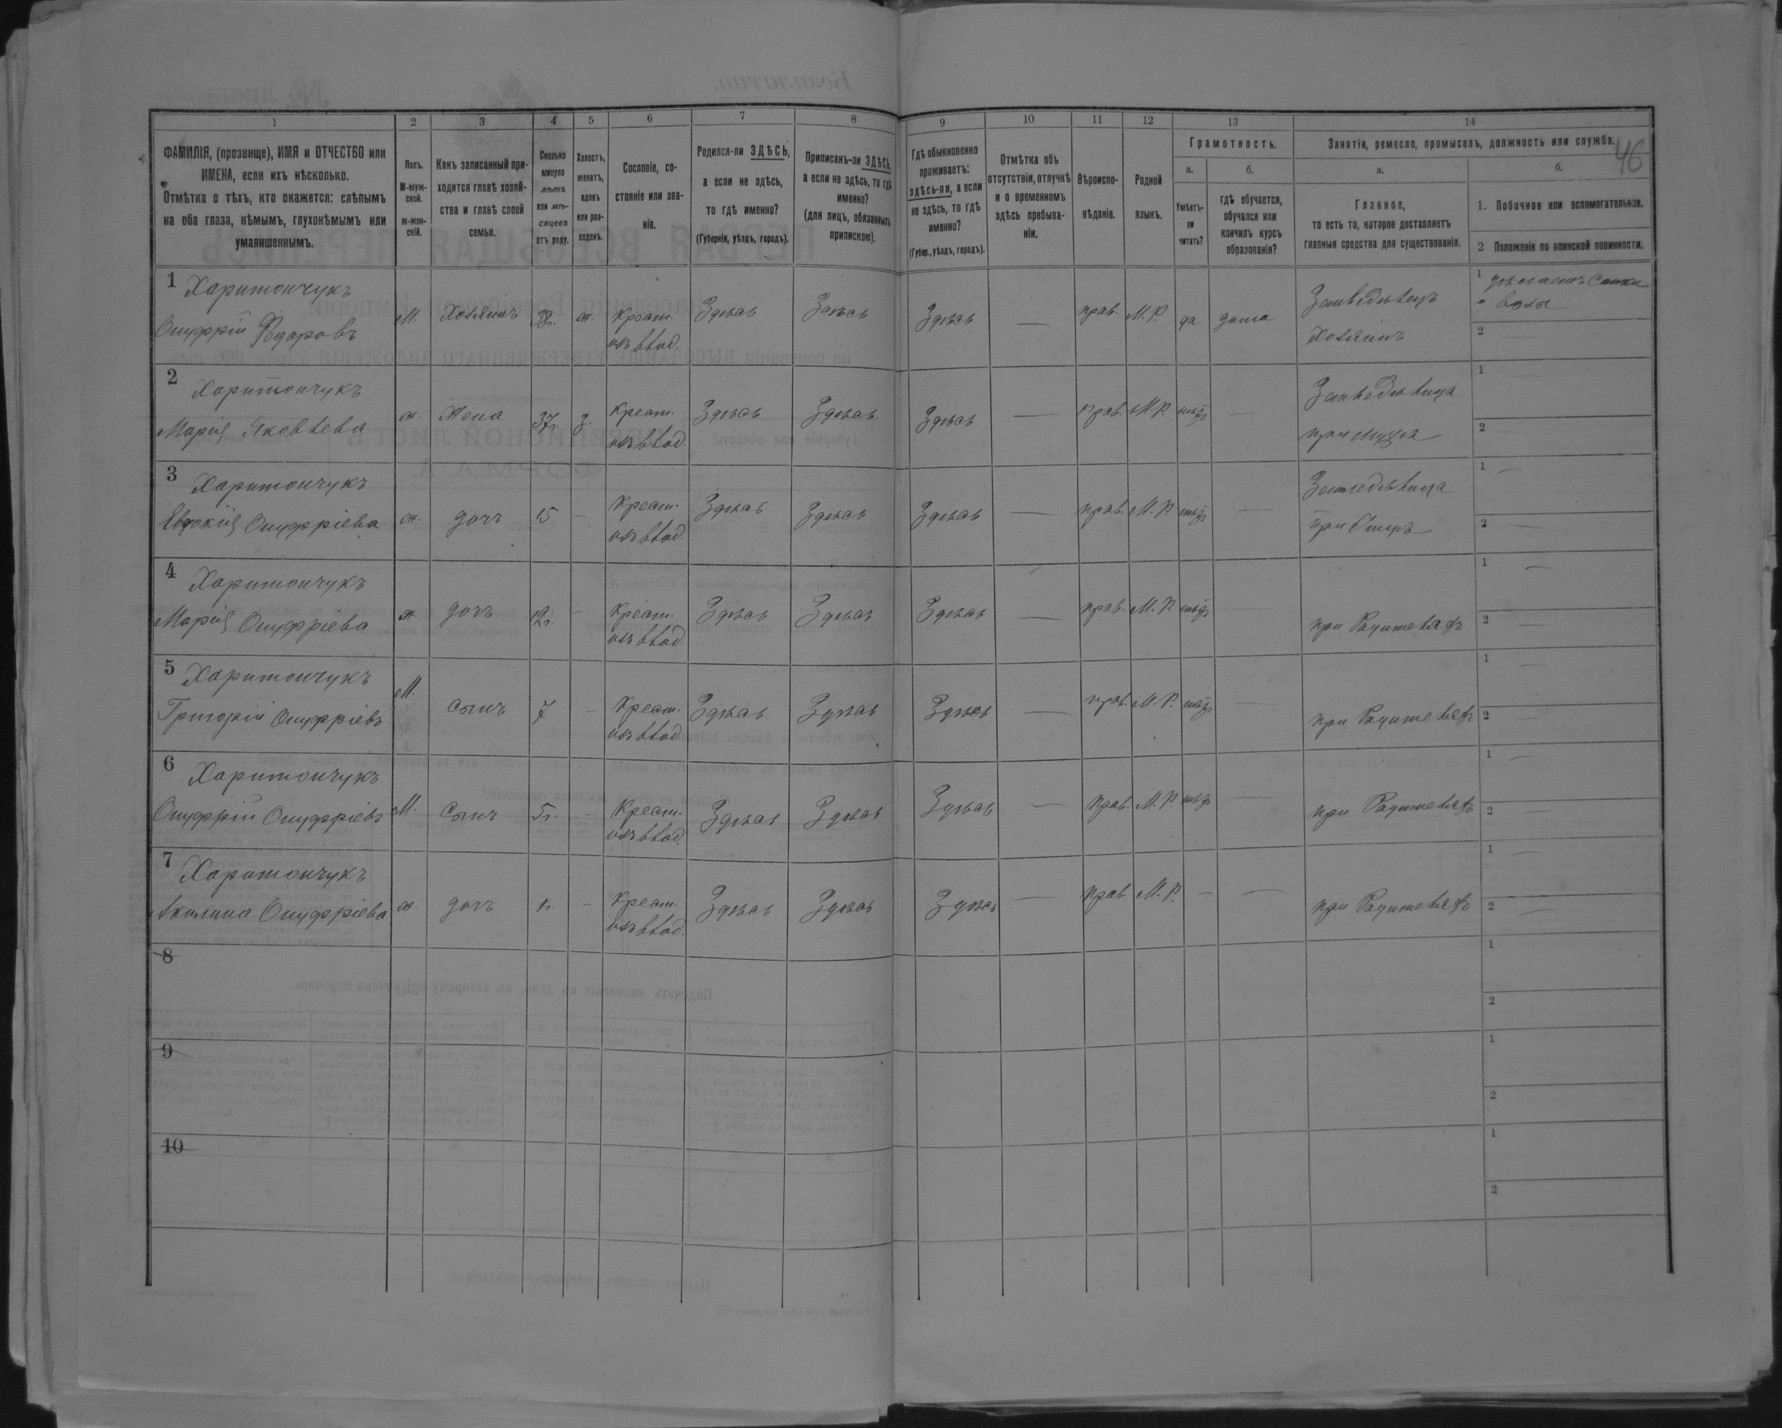 1 2 3 4 5 6 7 8 9 10 11 12 13 14
46
ФАМИЛІЯ, (прозвище), ИМЯ и ОТЧЕСТВО или
ИМЕНА, если ихъ нѣсколько.
Отмѣтка о тѣхъ, кто окажется: слѣпымъ
на оба глаза, нѣмымъ, глухонѣмымъ или
умалишеннымъ.
Полъ.
М-муж-
ской.
ж-жен-
скій.
Какъ записанный при-
ходится главѣ хозяй-
ства и главѣ своей
семьи.
Сколько
минуло
лѣтъ
или мѣ-
сяцевъ
отъ роду.
Холостъ,
женатъ,
вдовъ
или раз-
веденъ.
Сословіе, со-
стояніе или зва-
ніе.
Родился-ли ЗДѢСЬ,
а если не здѣсь,
то гдѣ именно?
(Губернія, уѣздъ, городъ).
Приписанъ-ли ЗДѢСЬ,
а если не здѣсь, то гдѣ
именно?
(для лицъ, обязанныхъ
припискою).
Гдѣ обыкновенно
проживаетъ:
здѣсь-ли, а если
не здѣсь, то гдѣ
именно?
(Губер., уѣздъ, городъ).
Отмѣтка объ
отсутствіи, отлучкѣ
и о временномъ
здѣсь пребыва-
ніи.
Вѣроиспо-
вѣданіе.
Родной
языкъ.
Грамотность.
а.
Умѣетъ-
ли
читать?
б.
гдѣ обучается,
обучался или
кончилъ курсъ
образованія?
Занятіе, ремесло, промыселъ, должность или служба.
а.
Главное,
то есть то, которое доставляетъ
главныя средства для существованія.
б.
1. Побочное или вспомогательное.
2 Положеніе по воинской повинности.
1 Харитончукъ
Онуфрій Федоровъ М. Хозяинъ 38г. ж. Крест. изъ влад. Здѣсь Здѣсь Здѣсь — прав. М.Р. да дома Земледѣлецъ
Хозяинъ
1
2
2 Харитончукъ
Марія Яковлева ж. Жена 37г. з. Крест. изъ влад. Здѣсь Здѣсь Здѣсь — прав. М.Р. нѣтъ — Земледѣлица
при мужѣ
1 —
2 —
3 Харитончукъ
Евдокія Онуфріева ж. дочь 15 — Крест. изъ влад. Здѣсь Здѣсь Здѣсь — прав. М.Р. нѣтъ — Земледѣлица
при Отцѣ
1 —
2 —
4 Харитончукъ
Марія Онуфріева ж. дочь 12г. — Крест. изъ влад. Здѣсь Здѣсь Здѣсь — прав. М.Р. нѣтъ —
при Родителяхъ
1 —
2 —
5 Харитончукъ
Григорій Онуфріевъ М. сынъ 7 — Крест. изъ влад. Здѣсь Здѣсь Здѣсь — прав. М.Р. нѣтъ —
при Родителяхъ
1 —
2 —
6 Харитончукъ
Онуфрій Онуфріевъ М. Сынъ 5г. — Крест. изъ влад. Здѣсь Здѣсь Здѣсь — прав. М.Р. нѣтъ —
при Родителяхъ
1 —
2 —
7 Харитончукъ
Акилина Онуфріева ж. дочь 1г. — Крест. изъ влад. Здѣсь Здѣсь Здѣсь — прав. М.Р. — —
при Родителяхъ
1 —
2 —
8
1
2
9
1
2
10
1
2